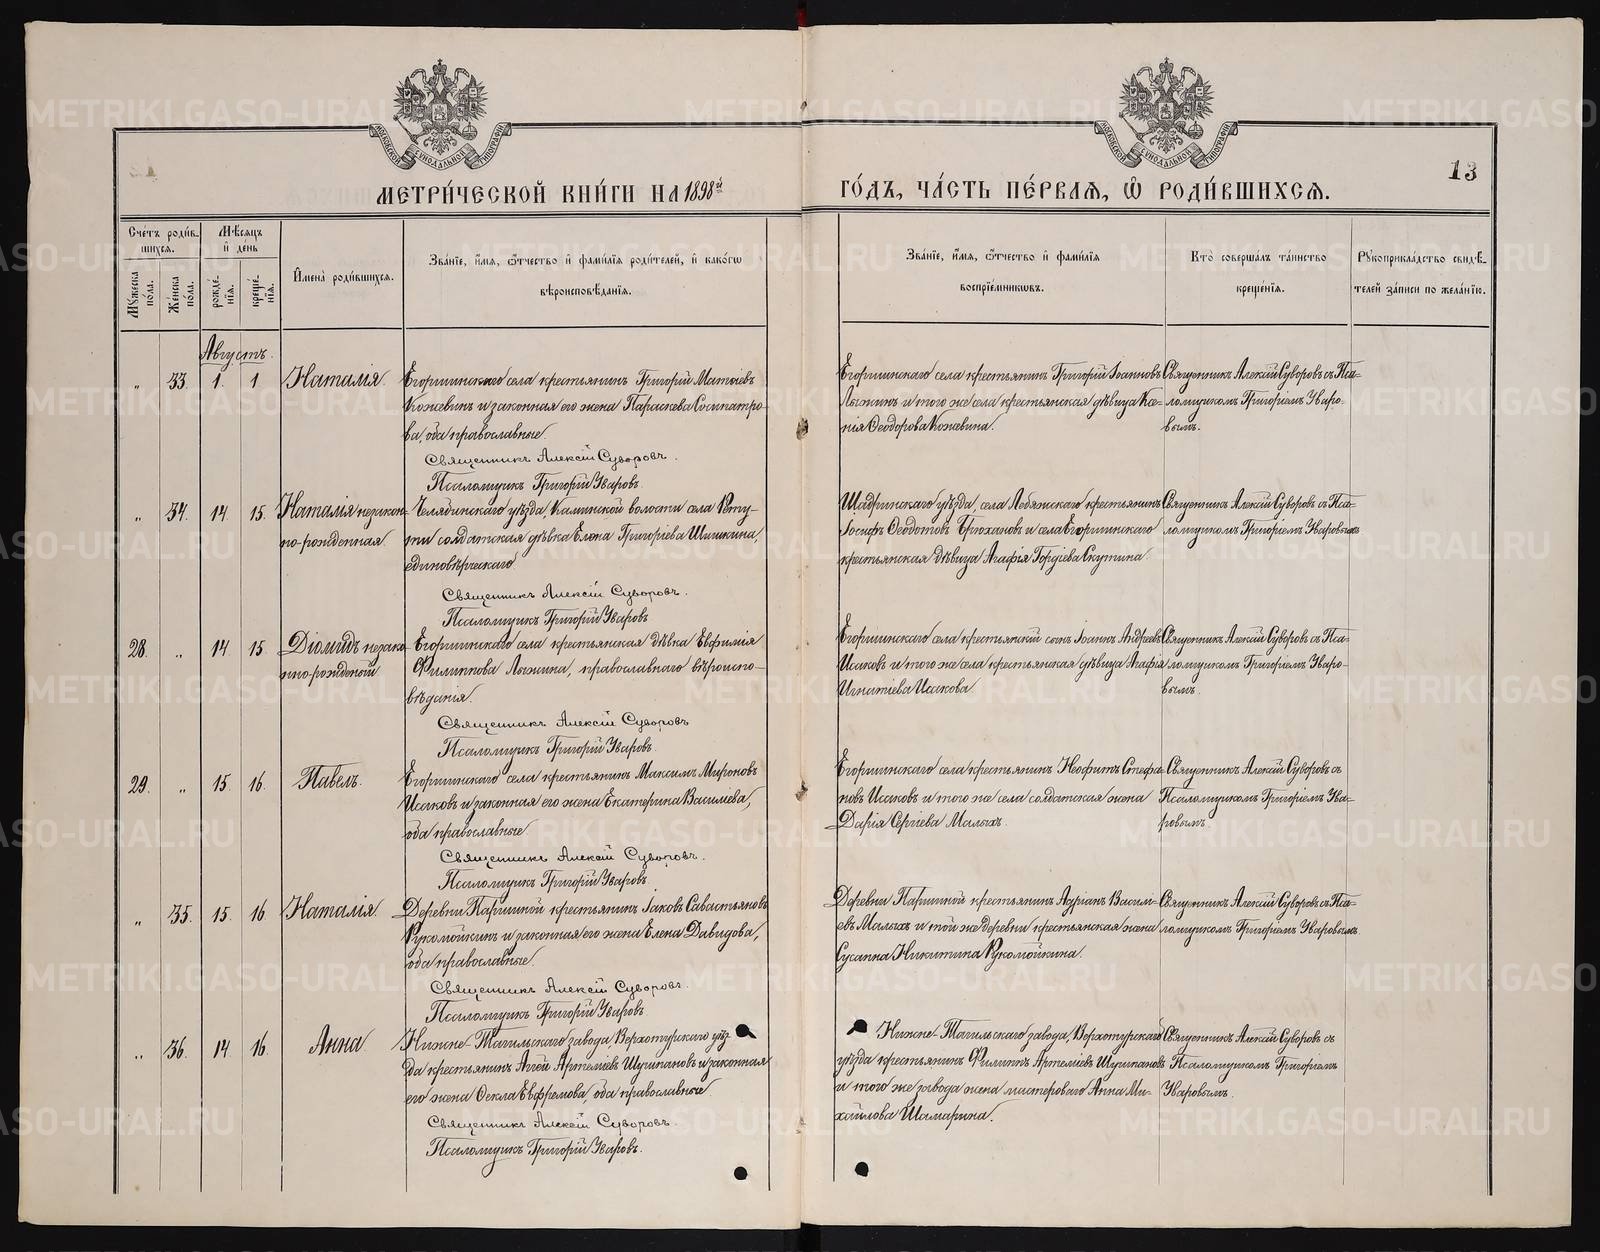 МОСКОВСКОЙ СѴНОДАЛЬНОЙ ТИПОГРАФІИ
МОСКОВСКОЙ СѴНОДАЛЬНОЙ ТИПОГРАФІИ
13
МЕТРИ́ЧЕСКОЙ КНИ́ГИ НА 1898й
ГО́ДЪ, ЧА́СТЬ ПЕ́РВАЯ, Ѿ РОДИ́ВШИХСЯ.
Сче́тъ роди́вшихся.
Мꙋ́жеска по́ла.
Же́нска по́ла.
Мѣ́сяцъ и҆ де́нь
рожде́нїя.
креще́нїя.
И҆мена̀ роди́вшихся.
Зва́нїе, и҆́мя, ѻ҆́тчество и҆ фами́лїя роди́телей, и҆ како́гѡ
вѣроисповѣ́данїя.
Зва́нїе, и҆́мя, ѻ҆́тчество и҆ фами́лїя
воспрїе́мникѡвъ.
Кто̀ соверша́лъ та́инство
креще́нїя.
Рꙋкоприкла́дство свидѣ́-
телей за́писи по жела́нїю.
Августъ.
" 33. 1. 1 Наталія.
Егоршинскаго села крестьянинъ Григорій Матѳіевъ
Кожевинъ и законная его жена Параскева Сосипатро-
ва, оба православные.
Священникъ Алексій Суворовъ.
Псаломщикъ Григорій Уваровъ.
Егоршинскаго села крестьянинъ Григорій Іоанновъ
Лыжинъ и того же села крестьянская дѣвица Ксе-
нія Ѳеодорова Кожевина.
Священникъ Алексій Суворовъ съ Пса-
ломщикомъ Григоріемъ Уваро-
вымъ.
" 34. 14. 15. Наталія незакон-
но-рожденная.
Челябинскаго уѣзда, села
солдатская дѣвка Елена Григоріева Шишкина,
единовѣрческаго
Священникъ Алексій Суворовъ.
Псаломщикъ Григорій Уваровъ
Шадринскаго уѣзда, села Лебяжскаго крестьянинъ
Іосифъ Ѳеодотовъ Брюхановъ и села Егоршинскаго
крестьянская дѣвица Агафія Гордіева Скутина.
Священникъ Алексій Суворовъ съ Пса-
ломщикомъ Григоріемъ Уваровымъ
28. " 14. 15. Діомидъ незако-
нно-рожденый
Егоршинскаго села крестьянская дѣвка Евфимія
Филиппова Лыжина, православнаго вѣроиспо-
вѣданія.
Священникъ Алексій Суворовъ
Псаломщикъ Григорій Уваровъ.
Егоршинскаго села крестьянскій сынъ Іоаннъ Андреевъ
Исаковъ и того же села крестьянская дѣвица Агафія
Игнатіева Исакова
Священникъ Алексій Суворовъ съ Пса-
ломщикомъ Григоріемъ Уваро-
вымъ.
29. " 15. 16. Павелъ.
Егоршинскаго села крестьянинъ Максимъ Мироновъ
Исаковъ и законная его жена Екатерина Василіева,
оба православные.
Священникъ Алексій Суворовъ.
Псаломщикъ Григорій Уваровъ.
Егоршинскаго села крестьянинъ Неофитъ Стефа-
новъ Исаковъ и того же села солдатская жена
Дарія Сергіева Малыхъ.
Священникъ Алексій Суворовъ съ
Псаломщикомъ Григоріемъ Ува-
ровымъ.
" 35. 15. 16. Наталія.
Деревни Паршиной крестьянинъ Іаковъ Савастьяновъ
Рукомойкинъ и законная его жена Елена Давидова,
оба православные.
Священникъ Алексій Суворовъ.
Псаломщикъ Григорій Уваровъ.
Деревни Паршиной крестьянинъ Адріанъ Васили-
евъ Малыхъ и той же деревни крестьянская жена
Сусанна Никитина Рукомойкина.
Священникъ Алексій Суворовъ съ Пса-
ломщикомъ Григоріемъ Уваровымъ.
" 36. 14. 16. Анна.
Нижне-Тагильскаго завода, Верхотурскаго уѣз-
да крестьянинъ Аггей Артеміевъ Шушпановъ и законная
его жена Ѳекла Евфремова, оба православные.
Священникъ Алексій Суворовъ.
Псаломщикъ Григорій Уваровъ.
Нижне-Тагильскаго завода, Верхотурскаго
уѣзда крестьянинъ Филиппъ Артеміевъ Шушпановъ
и того же завода жена мастероваго Анна Ми-
хайлова Шамарина.
Священникъ Алексій Суворовъ съ
Псаломщикомъ Григоріемъ
Уваровымъ.
METRIKI.GASO-URAL.RU